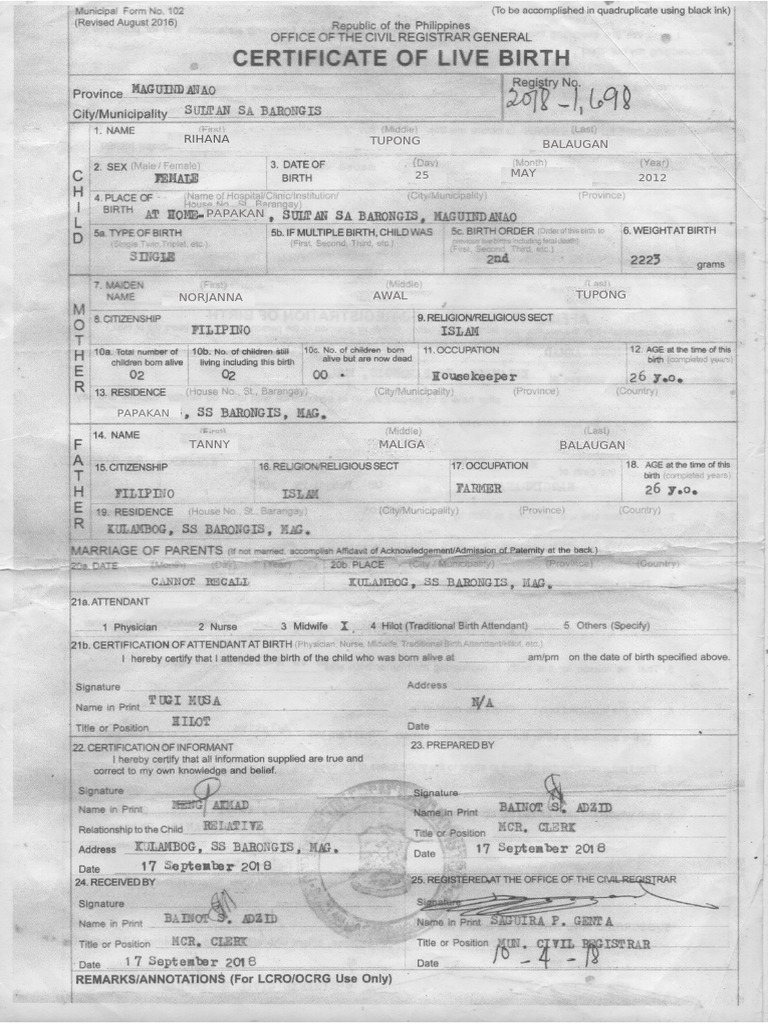 Municipal Form No. 102 (To be accomplished in quadruplicate using black ink)
(Revised August 2016) Republic of the Philippines
OFFICE OF THE CIVIL REGISTRAR GENERAL
CERTIFICATE OF LIVE BIRTH
Province MAGUINDANAO Registry No.
City/Municipality SULTAN SA BARONGIS 2018-1,698
CHILD
1. NAME (First) (Middle) (Last)
RIHANA TUPONG BALAUGAN
2. SEX (Male / Female) 3. DATE OF BIRTH (Day) (Month) (Year)
FEMALE 25 MAY 2012
4. PLACE OF BIRTH (Name of Hospital/Clinic/Institution/ House No., St., Barangay) (City/Municipality) (Province)
AT HOME-PAPAKAN , SULTAN SA BARONGIS, MAGUINDANAO
5a. TYPE OF BIRTH 5b. IF MULTIPLE BIRTH, CHILD WAS 5c. BIRTH ORDER (Order of this birth to previous live births including fetal death) 6. WEIGHT AT BIRTH
(Single, Twin, Triplet, etc.) (First, Second, Third, etc.) (First, Second, Third, etc.)
SINGLE 2nd 2223 grams
MOTHER
7. MAIDEN NAME (First) (Middle) (Last)
NORJANNA AWAL TUPONG
8. CITIZENSHIP 9. RELIGION/RELIGIOUS SECT
FILIPINO ISLAM
10a. Total number of children born alive 10b. No. of children still living including this birth 10c. No. of children born alive but are now dead 11. OCCUPATION 12. AGE at the time of this birth (completed years)
02 02 00 Housekeeper 26 y.o.
13. RESIDENCE (House No., St., Barangay) (City/Municipality) (Province) (Country)
PAPAKAN , SS BARONGIS, MAG.
FATHER
14. NAME (First) (Middle) (Last)
TANNY MALIGA BALAUGAN
15. CITIZENSHIP 16. RELIGION/RELIGIOUS SECT 17. OCCUPATION 18. AGE at the time of this birth (completed years)
FILIPINO ISLAM FARMER 26 y.o.
19. RESIDENCE (House No., St., Barangay) (City/Municipality) (Province) (Country)
KULAMBOG, SS BARONGIS, MAG.
MARRIAGE OF PARENTS (If not married, accomplish Affidavit of Acknowledgement/Admission of Paternity at the back.)
20a. DATE (Month) (Day) (Year) 20b. PLACE (City / Municipality) (Province) (Country)
CANNOT RECALL KULAMBOG, SS BARONGIS, MAG.
21a. ATTENDANT
1 Physician 2 Nurse 3 Midwife X 4 Hilot (Traditional Birth Attendant) 5 Others (Specify)
21b. CERTIFICATION OF ATTENDANT AT BIRTH (Physician, Nurse, Midwife, Traditional Birth Attendant/Hilot, etc.)
I hereby certify that I attended the birth of the child who was born alive at am/pm on the date of birth specified above.
Signature Address
Name in Print TUGI MUSA N/A
Title or Position HILOT Date
22. CERTIFICATION OF INFORMANT
I hereby certify that all information supplied are true and
correct to my own knowledge and belief.
Signature
Name in Print MENG AKMAD
Relationship to the Child RELATIVE
Address KULAMBOG, SS BARONGIS, MAG.
Date 17 September 2018
23. PREPARED BY
Signature
Name in Print BAINOT S. ADZID
Title or Position MCR. CLERK
Date 17 September 2018
24. RECEIVED BY
Signature
Name in Print BAINOT S. ADZID
Title or Position MCR. CLERK
Date 17 September 2018
25. REGISTERED AT THE OFFICE OF THE CIVIL REGISTRAR
Signature
Name in Print SAGUIRA P. GENTA
Title or Position MUN. CIVIL REGISTRAR
Date 10-4-18
REMARKS/ANNOTATIONS (For LCRO/OCRG Use Only)